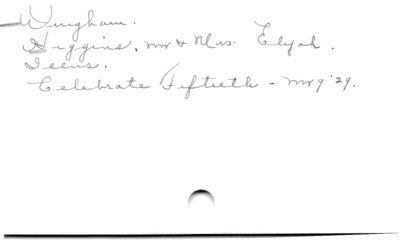 Wingham.
Higgins, Mr & Mrs. Elijah.
Celebrate Fiftieth - Mr 9 '29.